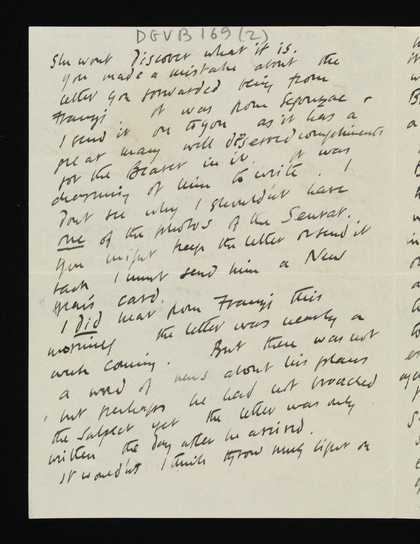 DGVB 169 (2)
She wont discover what it is.
You made a mistake about the
letter you forwarded being from
Francis it was from Segonzac &
I send it on to you as it has a
great many well deserved compliments
for the Bearer in it. It was
charming of him to write. I
dont see why I shouldn't have
one of the photos of the Seurat.
You might keep the letter or send it
back I must send him a New
Year's card.
I did hear from Francis this
morning the letter was nearly a
week coming. But there was not
a word of news about his plans
but perhaps he had not broached
the subject yet the letter was only
written the day after he arrived.
It wouldnt I think throw much light on